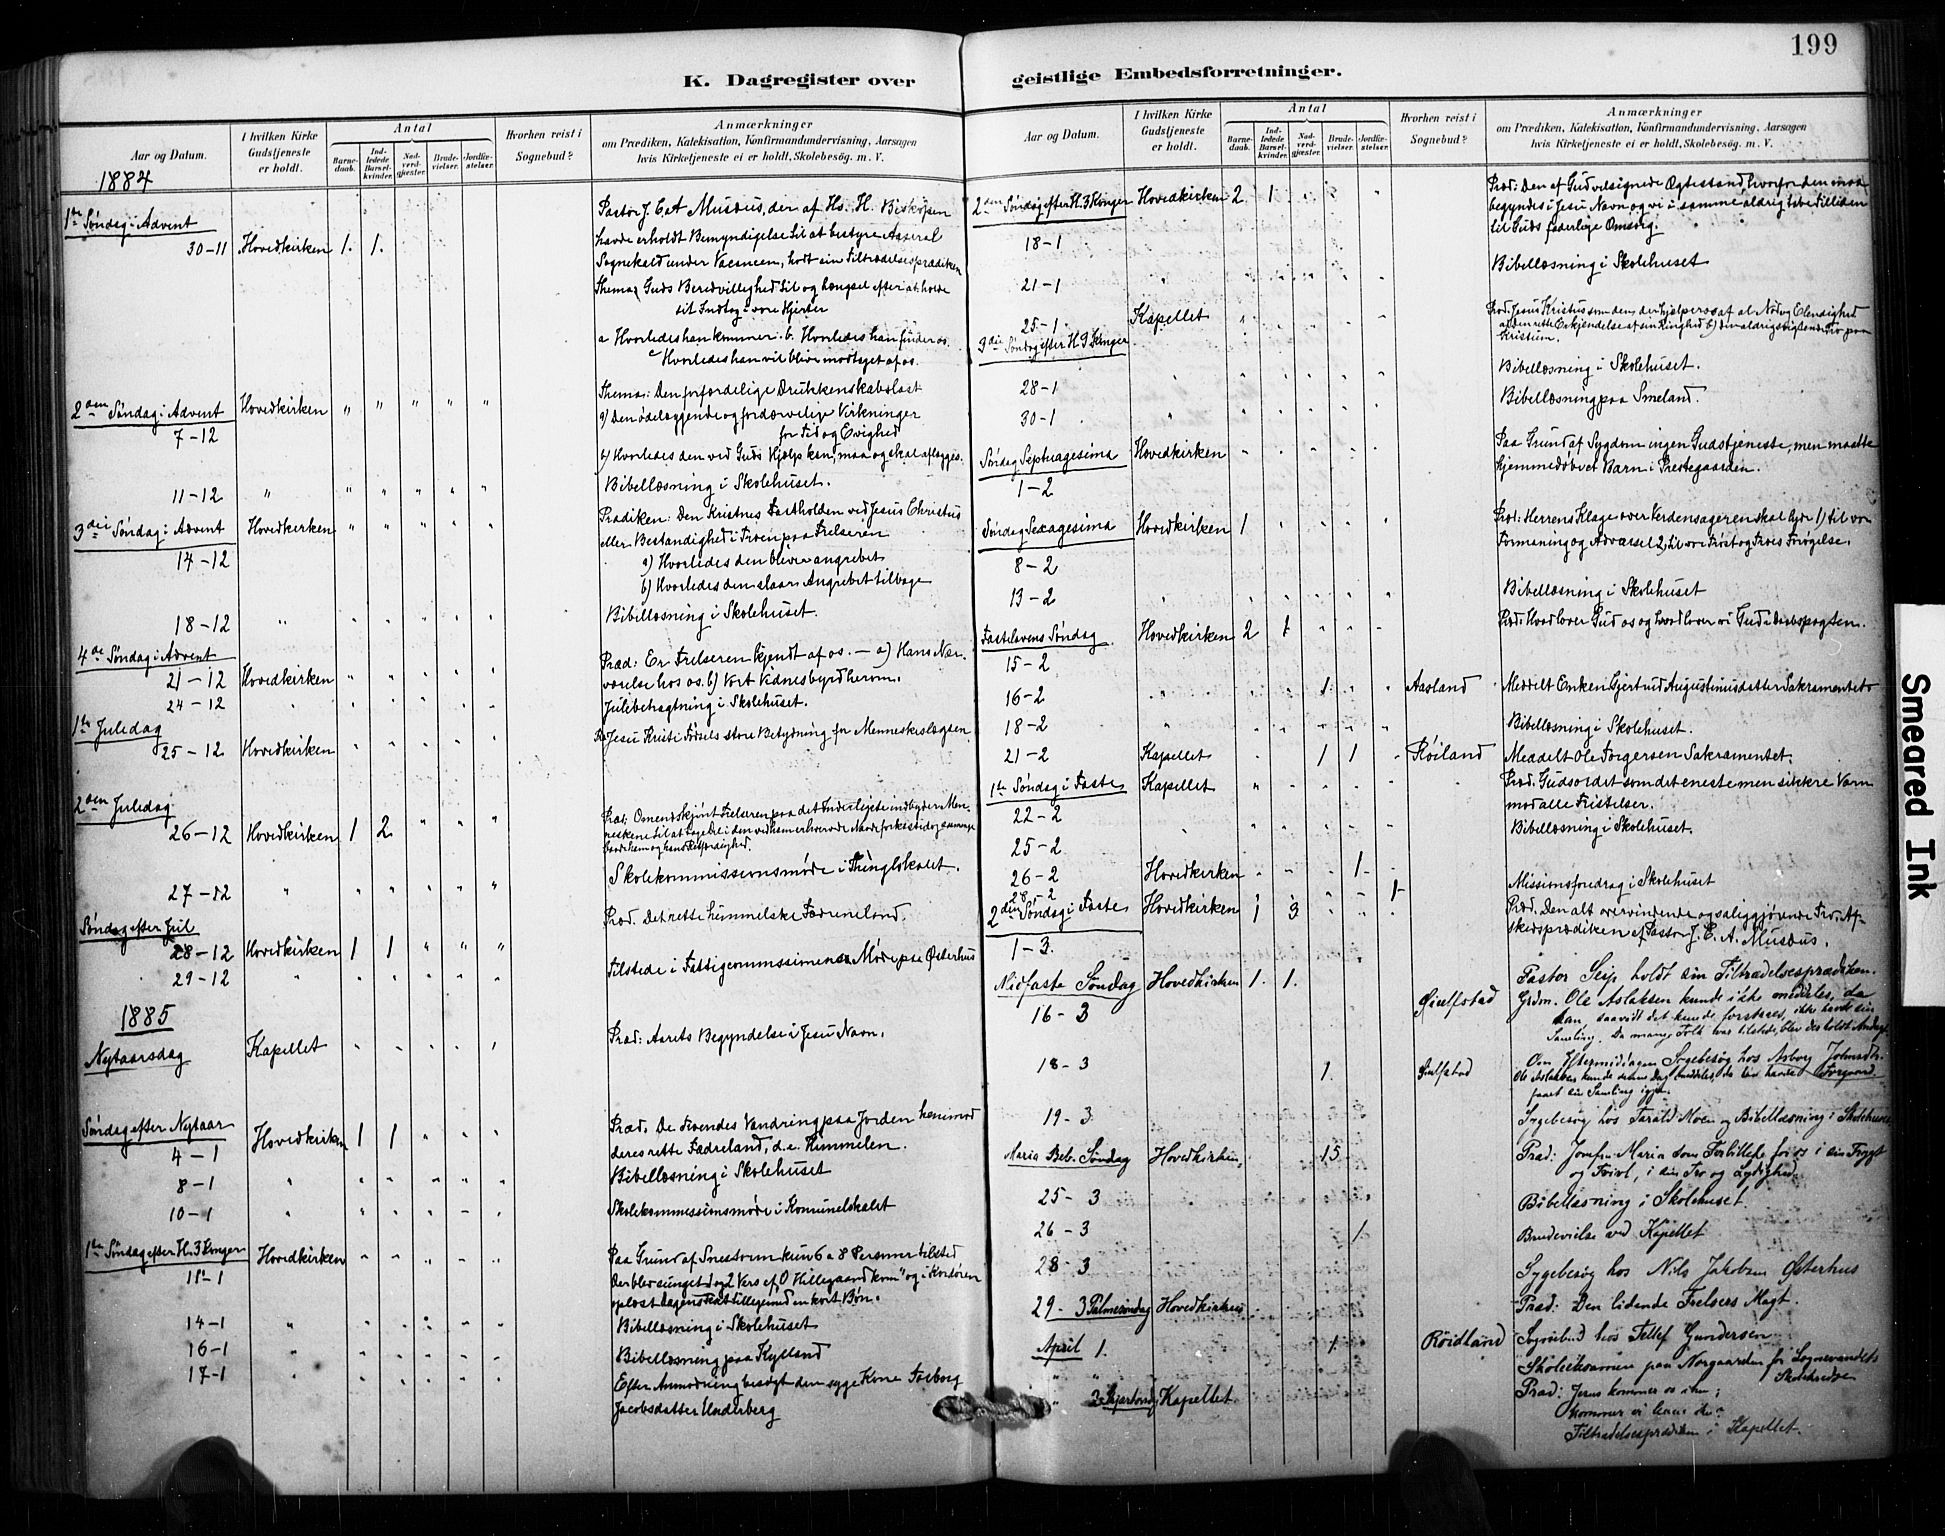 199
K. Dagregister over geistlige Embedsforretninger.
Aar og Datum.
I hvilken Kirke Gudstjeneste er holdt.
Antal
Barnedaab.
Indledede Barselkvinder.
Nadverdgjester.
Brudevielser.
Jordfæstelser.
Hvorhen reist i Sognebud?
Anmærkninger
om Prædiken, Katekisation, Konfirmandundervisning, Aarsagen
hvis Kirketjeneste ei er holdt, Skolebesög. m. V.
1884
1ste Søndag i Advent
30-11 Hovedkirken 1. 1. Pastor J. E. A Musæus, der af Hs. H. Biskopen
havde erholdt Bemyndigelse til at bestyre Aaseral
Sognekald under Vacancen, holdt sin Tiltrædelsesprædiken
Thema: Guds Beredvillighed til og længsel efter at holde
sit Indtog i vore Hjerter
a Hvorledes han kommer. b. Hvorledes han finder os.
c Hvorledes han vil blive modtaget af os.
2den Søndag i Advent Hovedkirken " " " " " Thema: Den forfærdelige Drukkenskabslast
7-12 a) Den ødelæggende og fordærvelige Virkninger
for Tid og Evighed
b) Hvorledes den ved Guds Hjælp kan, maa og skal aflægges.
11-12 " " " " " " Bibellæsning i Skolehuset.
3die Søndag i Advent Hovedkirken " " " " " Prædiken: Den Kristnes Fastholden ved Jesus Christus
14-12 eller Bestandighed i Troen paa Frelseren
a) Hvorledes den bliver angrebet
b) Hvorledes den slaar Angrebet tilbage
18-12 " " " " " " Bibellæsning i Skolehuset.
4de Søndag i Advent
21-12 Hovedkirken " " " " " Præd: Er Frelseren kjendt af os. — a) Hans Nær-
værelse hos os. b) Vort Vidnesbyrd herom.
24-12 " " " " " " Julebetragtning i Skolehuset.
1ste Juledag
25-12 Hovedkirken " " " " " Jesu Kristi Fødsels store Betydning for Menneskeslægten
2den Juledag
26-12 Hovedkirken 1 2 " " " Præd: Omendskjønt Frelseren paa det Inderligste indbyder Men-
neskene til at
baade ham og hans Retfærdighed.
27-12 " " " " " " Skolekommissionsmøde i Thinglokalet.
Søndag efter Jul
28-12 Hovedkirken 1 1 " " " Præd. Det rette himmelske Fædreneland.
29-12 " " " " " " Tilstede i Møde paa Østerhus
1885
Nytaarsdag Kapellet " " " " " Præd: Aarets Begyndelse i Jesu Navn.
Søndag efter Nytaar Hovedkirken 1 1 " " " Præd. De Troendes Vandring paa Jorden henimod
4-1 deres rette Fædreland, d.e. Himmelen.
8-1 " " " " " " Bibellæsning i Skolehuset
10-1 " " " " " " Skolekommissionsmøde i Komunelokalet
1ste Søndag efter H. 3 Konger Hovedkirken " " " " Paa Grund af Snestorm kun 6 a 8 Personer tilsted
11-1 Der blev sunget 1 og 2 Vers af og i Kordøren
oplæst Dagens Text tilligemed en kort Bøn.
14-1 " " " " " " Bibellæsning i Skolehuset
16-1 " " " " " " Bibellæsning paa Kylland
17-1 " " " " " " Efter Anmodning besøgt den syge Kone Torborg
Jacobsdatter Underberg
Aar og Datum.
I hvilken Kirke Gudstjeneste er holdt.
Antal
Barnedaab.
Indledede Barselkvinder.
Nadverdgjester.
Brudevielser.
Jordfæstelser.
Hvorhen reist i Sognebud?
Anmærkninger
om Prædiken, Katekisation, Konfirmandundervisning, Aarsagen
hvis Kirketjeneste ei er holdt, Skolebesög. m. V.
2den Søndag efter H. 3 Konger Hovedkirken 2. 1 Præd: Den af Gud velsignede Ægtestand, hvorfor den maa
18-1 begyndes i Jesu Navn og vi i samme aldrig tabe Tilliden
til Guds faderlige Omsorg.
21-1 " Bibellæsning i Skolehuset
25-1 Kapellet Præd. Jesus Kristus som den, der hjælper os af al Nød og Elendighed
3die Søndag efter H 3 Konger a) den rette Erkjendelse af sin Ringhed b) den aldrig svigtende Tro paa
Kristum.
28-1 " Bibellæsning i Skolehuset.
30-1 " Bibellæsning paa Smeland.
Søndag Septuagesima Hovedkirken Paa Grund af Sygdom ingen Gudstjeneste, men maatte
1-2 hjemmedøbt et Barn i Prestegaarden.
Søndag Sexagesima Hovedkirken 1 Præd: Herrens Klage over Verdensageren skal lyde 1) til vor
8-2 Formaning og Advarsel 2) til vor Trøst og Troes Forøgelse.
13-2 " Bibellæsning i Skolehuset
Fastelavens Søndag Hovedkirken 2 1 Præd. Hvad lover Gud os og hvad lover vi Gud i Daabspagten.
15-2
16-2 " 1. Aasland Meddelt Enken Gjertrud Augustinusdatter Sakramentet
18-2 " Bibellæsning i Skolehuset.
21-2 Kapellet 1 1 Røiland Meddelt Ole Torgersen Sakramentet.
1ste Søndag i Faste Kapellet Præd. Guds ord det som det eneste men sikkre Værn
22-2 mod alle Fristelser.
25-2 " Bibellæsning i Skolehuset.
26-2 Hovedkirken 1.
28-2 1 Missionsforedrag i Skolehuset
2den Søndag i Faste Hovedkirken 1 3 Præd. Den alt overvindende og saliggjørende Tro. Af-
1-3. skedsprædiken af Pastor J. E. A. Musæus.
Midfaste Søndag Hovedkirken 1. 1. Pastor Seip holdt sin Tiltrædelsesprædiken.
16-3 Grdm. Ole Aslaksen kunde ikke meddeles, da
han, saavidt det kunde forstaaes, ikke havde sin
Samling. Da mange Folk var tilstede, blev der holdt Andagt
18-3 1. Om Eftermiddagen Sygebesøg hos Asborg
Ole Aslaksen kunde denne Dag meddeles, da han havde
faaet sin Samling igjen.
19-3 Sygebesøg hos Tarald Moen og Bibellæsning i Skolehuset
Maria Beb. Søndag Hovedkirken, 15 Præd: Jomfru Maria som Forbillede for os i sin Frygt
og Tvivl, i sin Tro og Lydighed.
25-3 Bibellæsning i Skolehuset
26-3 1. Brudevielse ved Kapellet
28-3 Sygebesøg hos Nils Jakobsen Østerhus
29-3 Palmesøndag Hovedkirken Præd: Den lidende Frelsers Magt.
April 1. 1. Røidland Sognebud hos Tellef Gundersen
" Skoleeksamen paa Norgaarden for Sognevandets
Skolekreds
" 2 Skjærtorsdag Kapellet Præd: Jesus kommer os ihu;
kommer vi ham ihu?
Tiltrædelsesprædiken i Kapellet.
Smeared Ink